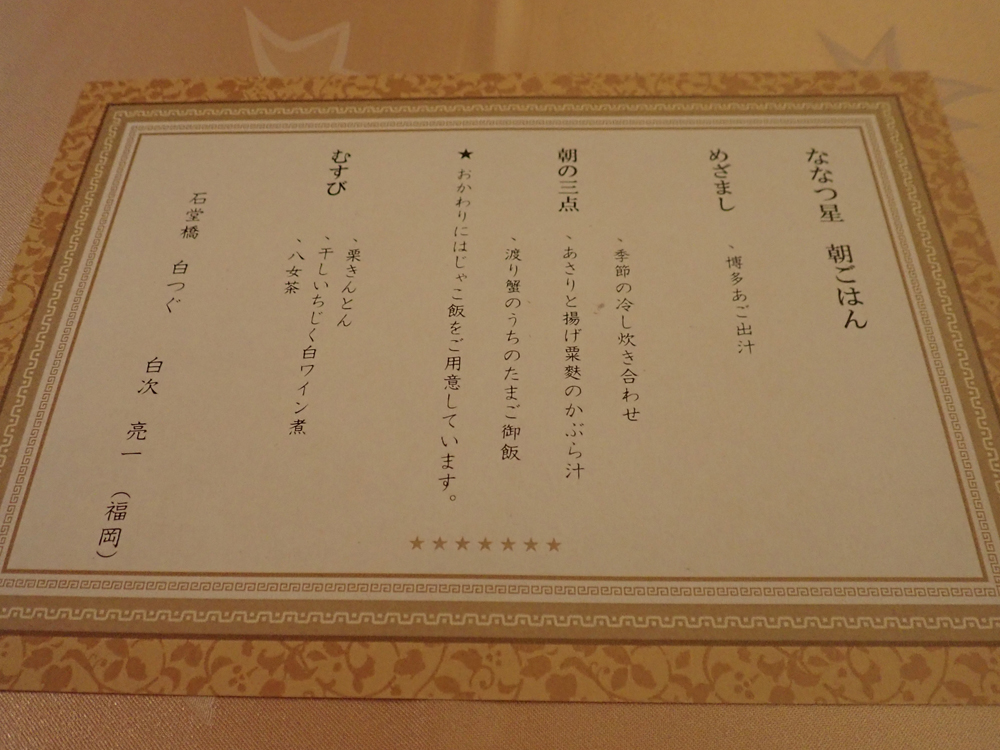 ななつ星 朝ごはん
めざまし
、博多あご出汁
朝の三点
、季節の冷し炊き合わせ
、あさりと揚げ粟麩のかぶら汁
、渡り蟹のうちのたまご御飯
★ おかわりにはじゃこ飯をご用意しています。
むすび
、栗きんとん
、干しいちじく白ワイン煮
、八女茶
石堂橋 白つぐ 白次 亮一 (福岡)
★★★★★★★